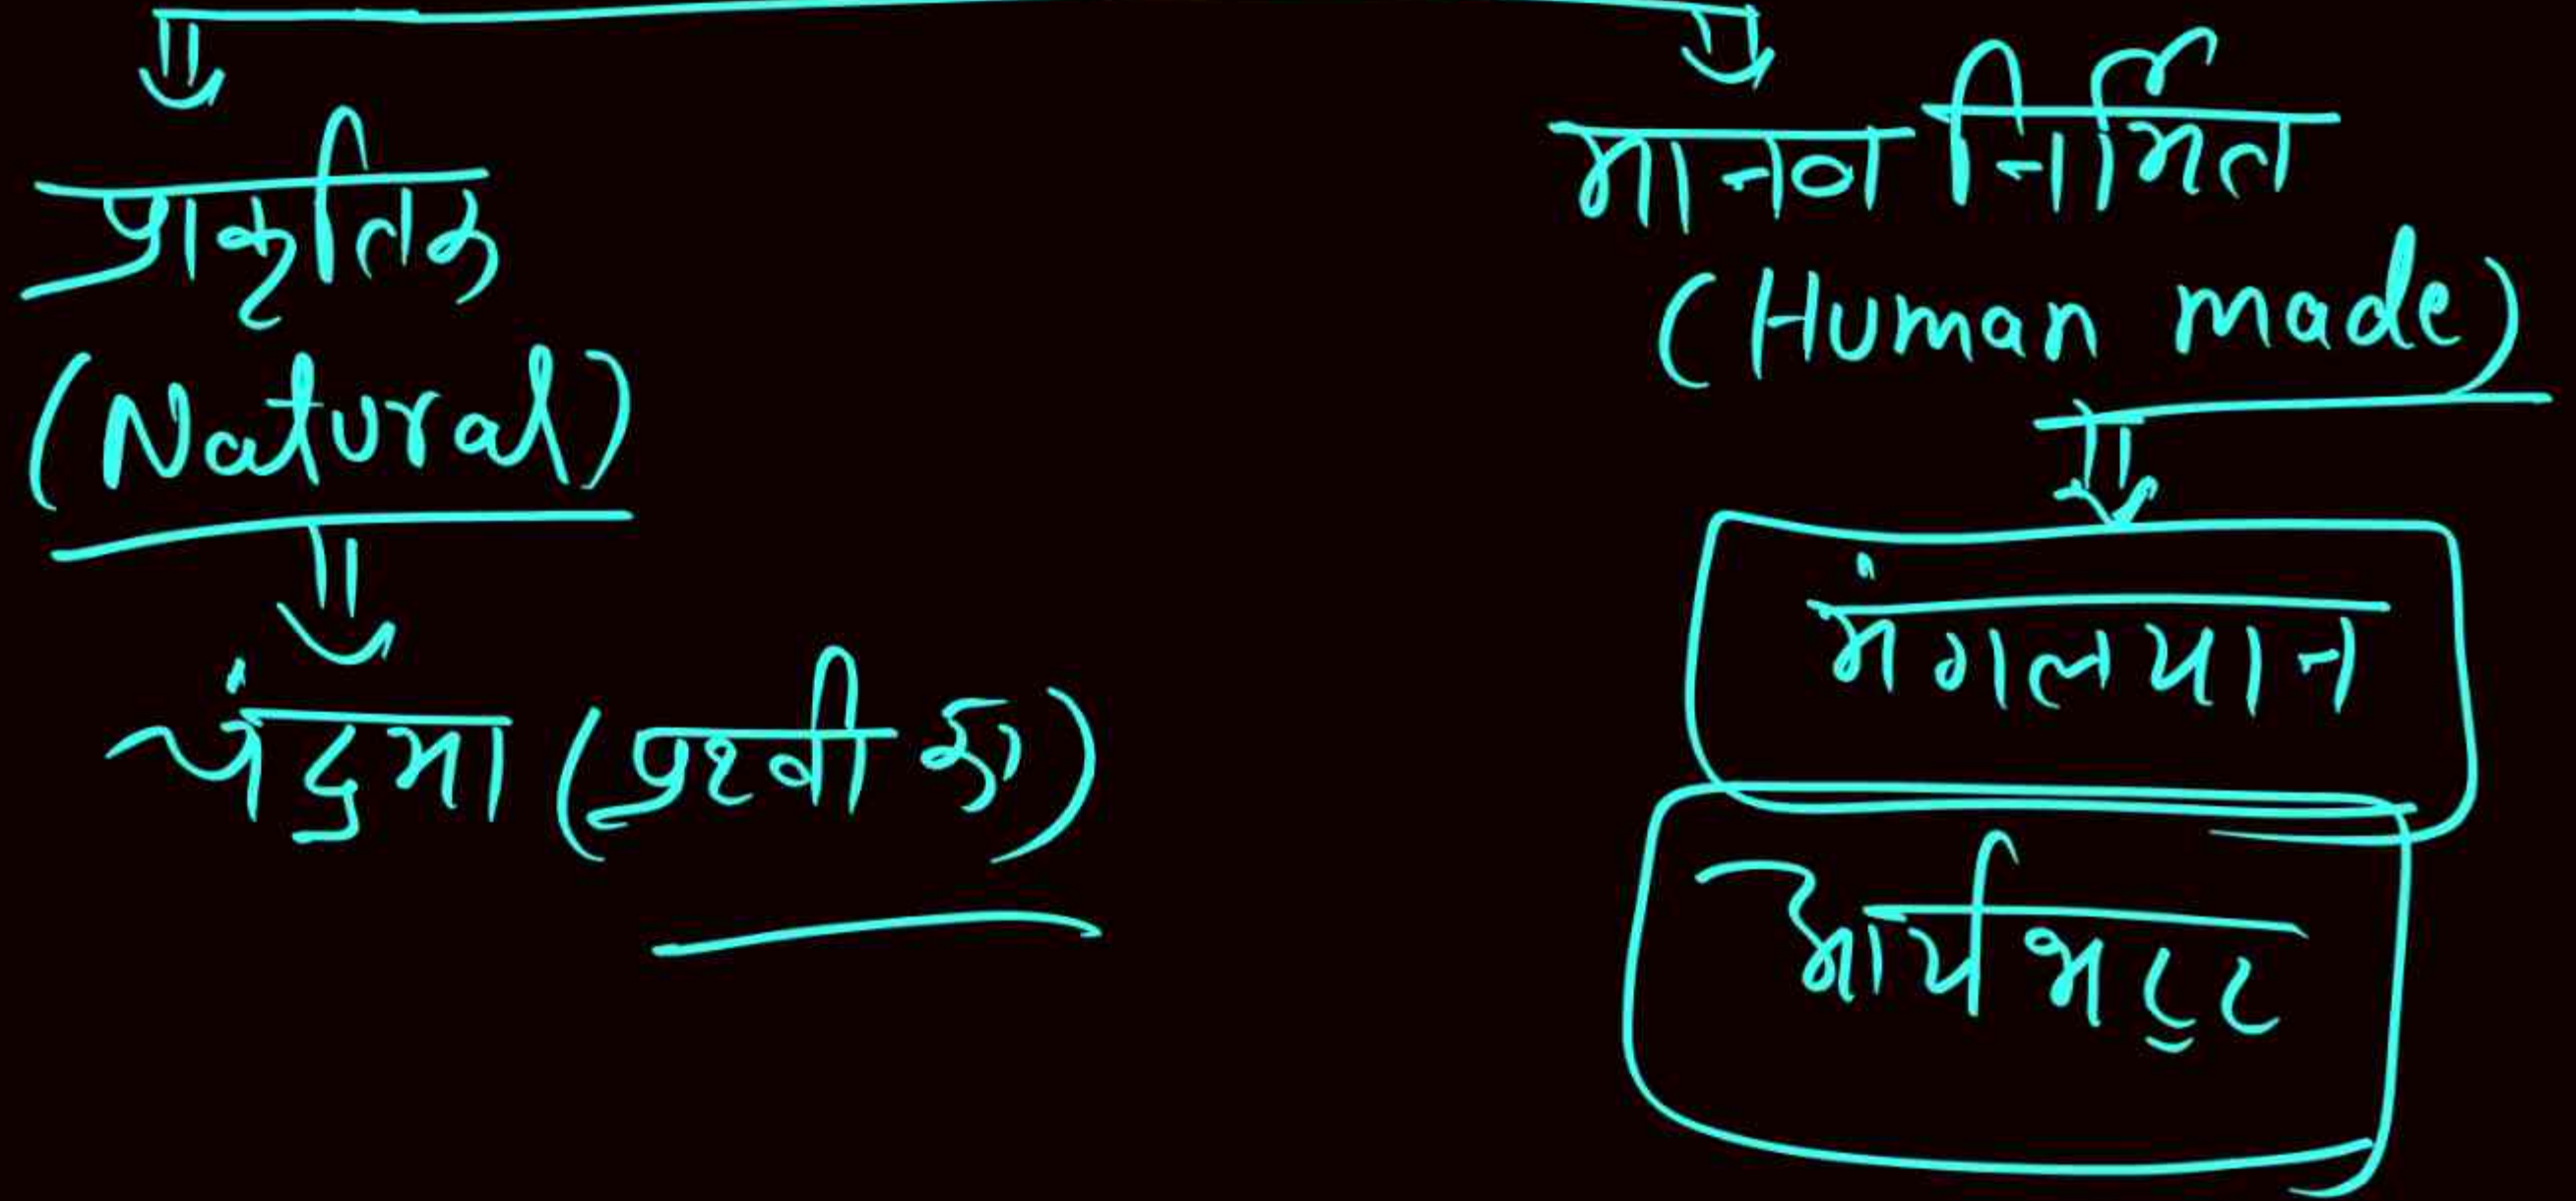 प्राकृतिक
(Natural)
चंद्रमा (प्रथ्वी का)
मानव निर्मित
(Human made)
मंगलयान
आर्यभट्ट